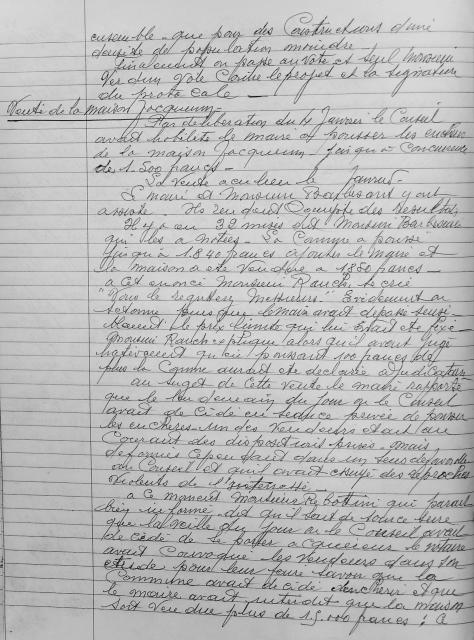 ensemble - que pour des Constructions d'une
densité de population moindre.
Finalement on passe au vote et seul Monsieur
Verdun vote Contre le projet et la signature
du protocole -
Vente de la maison Jacquemin -
Par délibération du 4 Janvier le Conseil
avait habilité le maire à pousser les enchères
de la maison Jacquemin jusqu'à Concurrence
de 1.500 francs -
La Vente a eu lieu le Janvier -
Le maire et Monsieur y ont
assisté. Ils rendent Compte des résultats
Il y a eu 32 mises dit Monsieur
qu'il les a notées - La Commune a poussé
jusqu'à 1.840 francs ajoute le maire et
la maison a été Vendue à 1850 francs -
à cet énoncé Monsieur Rauch s'écrie
"Vous le regrettez Messieurs" Evidemment on
s'étonne parce que le maire avait dépassé
le prix limite qui lui était été fixé
Monsieur Rauch explique alors qu'il avait jugé
qu'en poussant 100 francs de
plus la Commune aurait été déclarée adjudicataire
au sujet de cette Vente le maire rapporte
que le lendemain du jour où le Conseil
avait décidé en séance privée de pousser
les enchères - un des Vendeurs était au
Courant des dispositions prises - mais
déformées Cependant dans un sens défavorable
au Conseil et qu'il avait essuyé des reproches
violents de l'intéressé -
à ce moment Monsieur qui paraît
bien informé dit qu'il sait de source sûre
que la veille du jour où le Conseil avait
décidé de se porter acquéreur le notaire
avait Convoqué les Vendeurs dans son
étude pour leur faire savoir que la
Commune avait décidé d'enchérir et que
le maire avait interdit que la maison
soit Vendue plus de 15.000 francs ; à